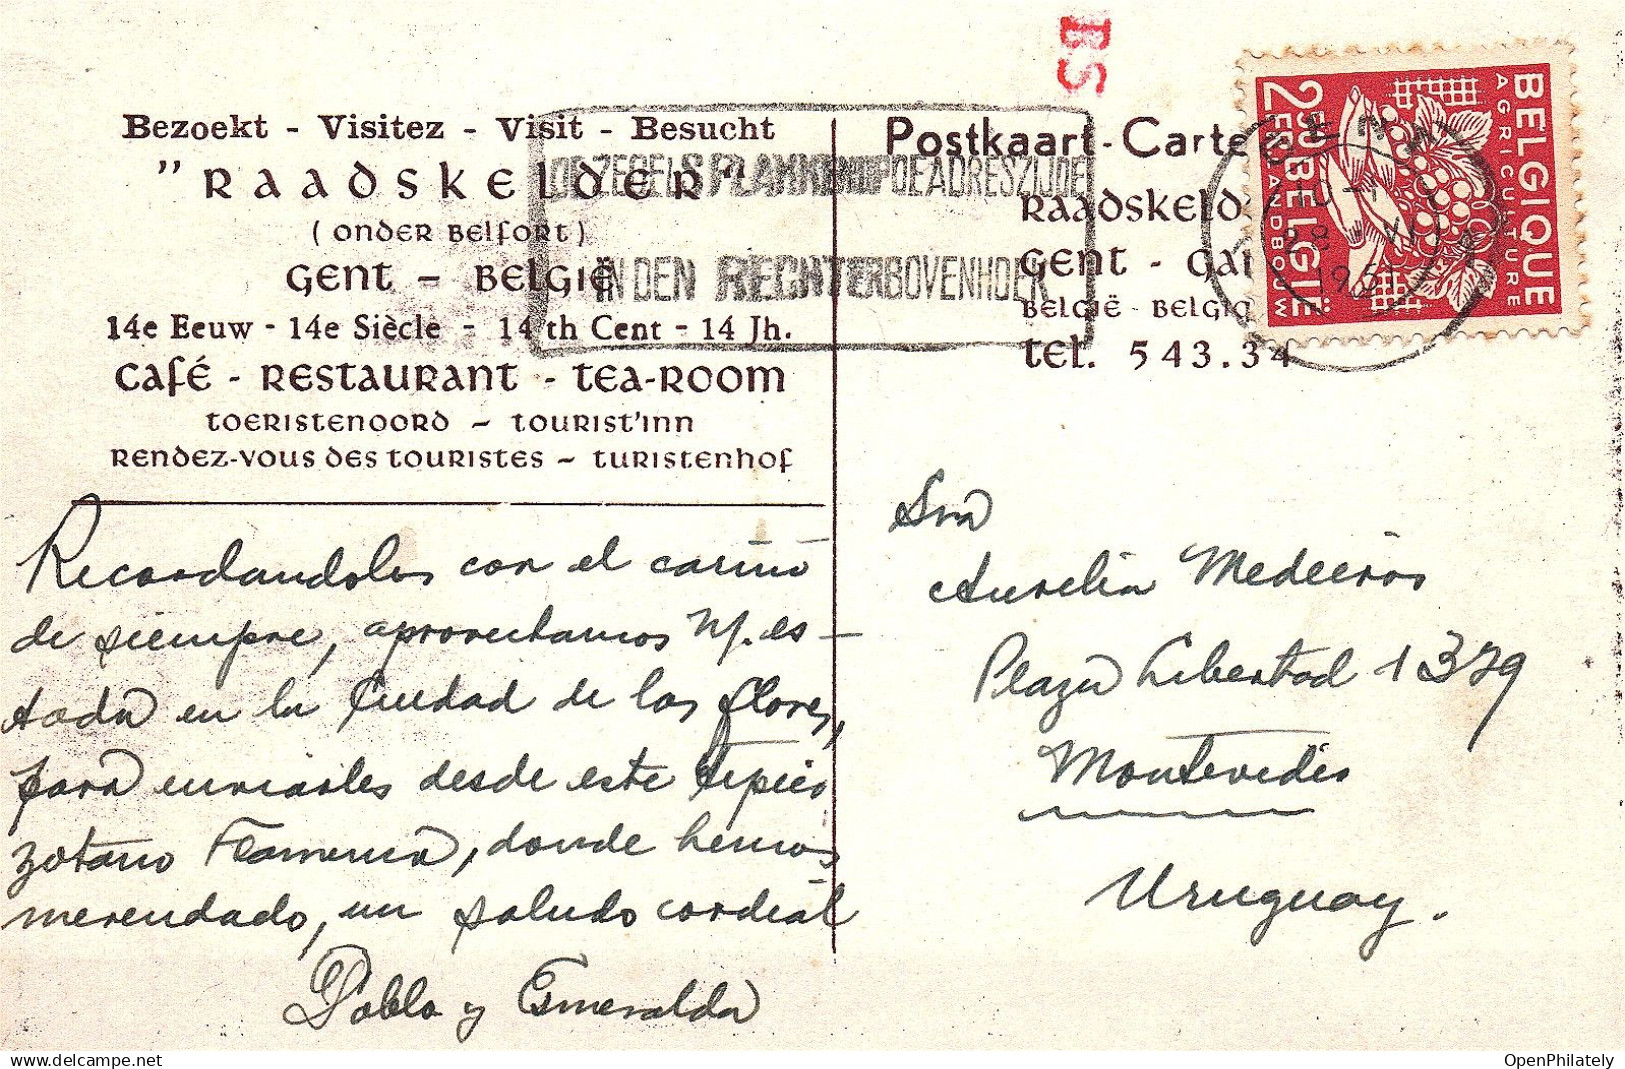 BS
Bezoekt - Visitez - Visit - Besucht
"RAADSKELDER"
(ONDER BELFORT)
GENT - BELGIË
14e Eeuw - 14e Siècle - 14 th Cent - 14 Jh.
CAFÉ - RESTAURANT - TEA-ROOM
TOERISTENOORD - TOURIST'INN
RENDEZ-VOUS DES TOURISTES - TURISTENHOF
POSTZEGELS PLAKKEN OP DE ADRESZIJDE
IN DEN RECHTERBOVENHOEK
Postkaart - Carte
RAADSKELD
GENT - GAN
BELGIË - BELGIQ
TEL. 543.34
BELGIQUE
AGRICULTURE
2F50 BELGIE
LANDBOUW
GENT
Recordandolos con el cariño
de siempre, aprovechamos n/. es-
tada en la Ciudad de las flores,
para enviarles desde este típico
zótano Flamenco, donde hemos
merendado, un saludo cordial
Pablo y Esmeralda
Sra
Aurelia Medeiros
Plaza Libertad 1379
Montevideo
Uruguay.
OpenPhilately